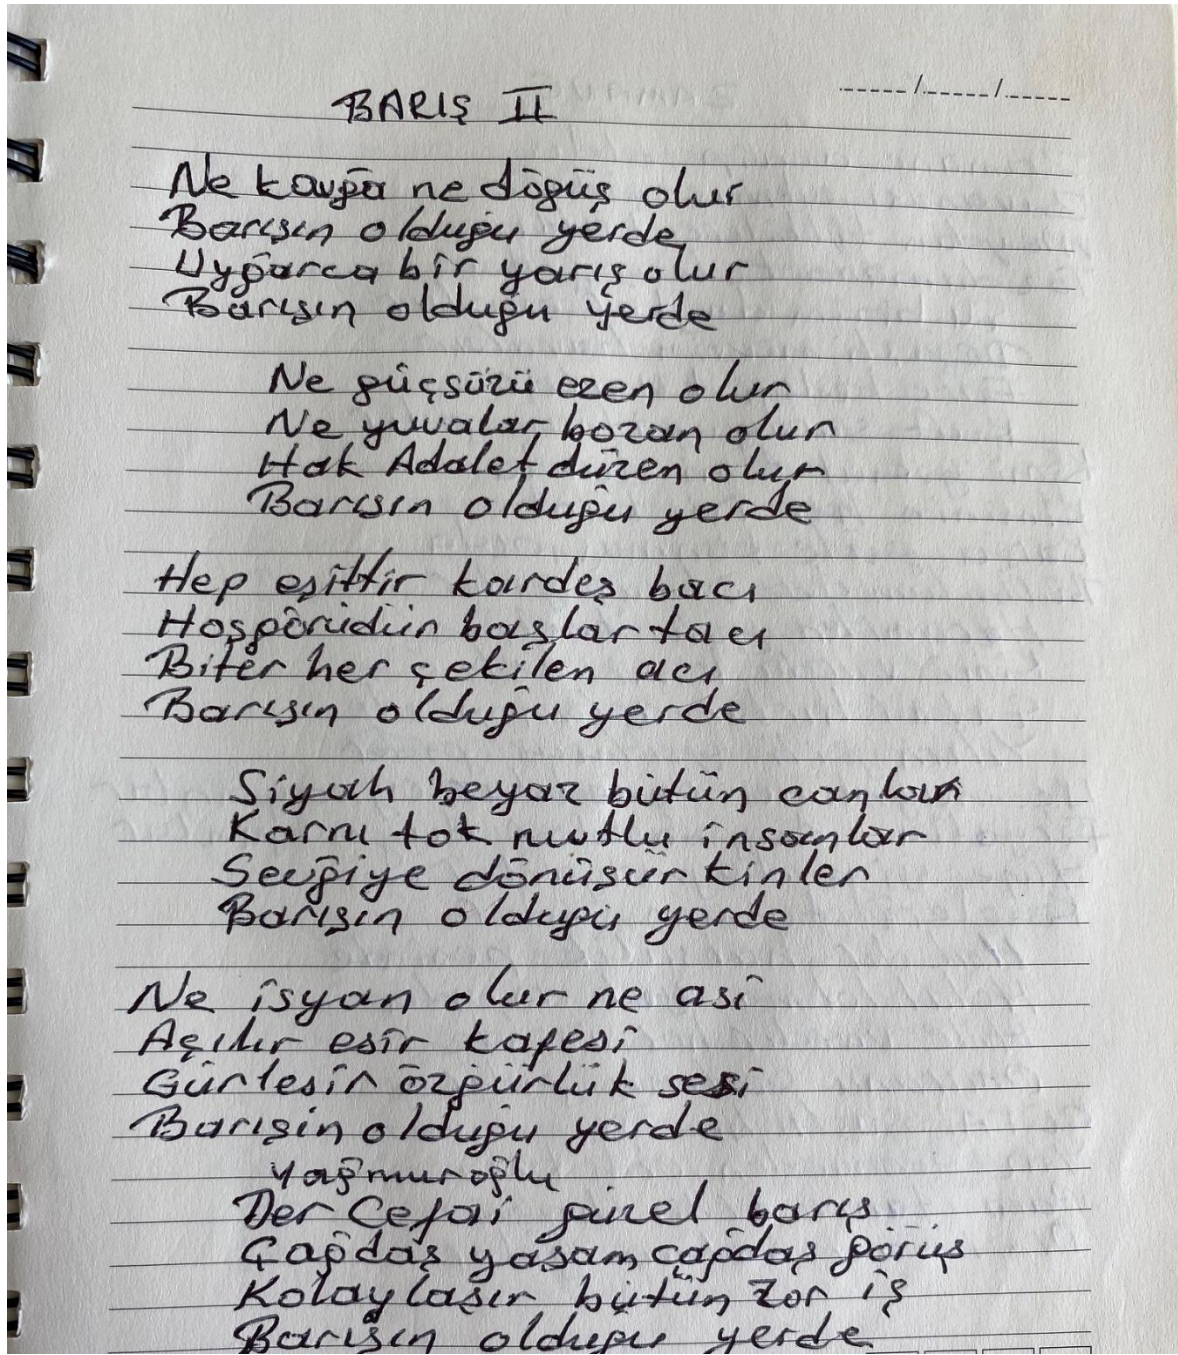 BARIŞ II
Ne kavga ne döğüş olur
Barışın olduğu yerde
Uygarca bir yarış olur
Barışın olduğu yerde
Ne güçsüzü ezen olur
Ne yuvalar bozan olur
Hak Adalet düzen olur
Barışın olduğu yerde
Hep eşittir kardeş bacı
Hoşgörüdür başlar tacı
Biter her çekilen acı
Barışın olduğu yerde
Siyah beyaz bütün canlar
Karnı tok mutlu insanlar
Sevgiye dönüşür kinler
Barışın olduğu yerde
Ne isyan olur ne asi
Açılır esir kafesi
Gürleşir özgürlük sesi
Barışın olduğu yerde
Yağmuroğlu
Der Cefai güzel barış
Çağdaş yaşam çağdaş görüş
Kolaylaşır bütün zor iş
Barışın olduğu yerde